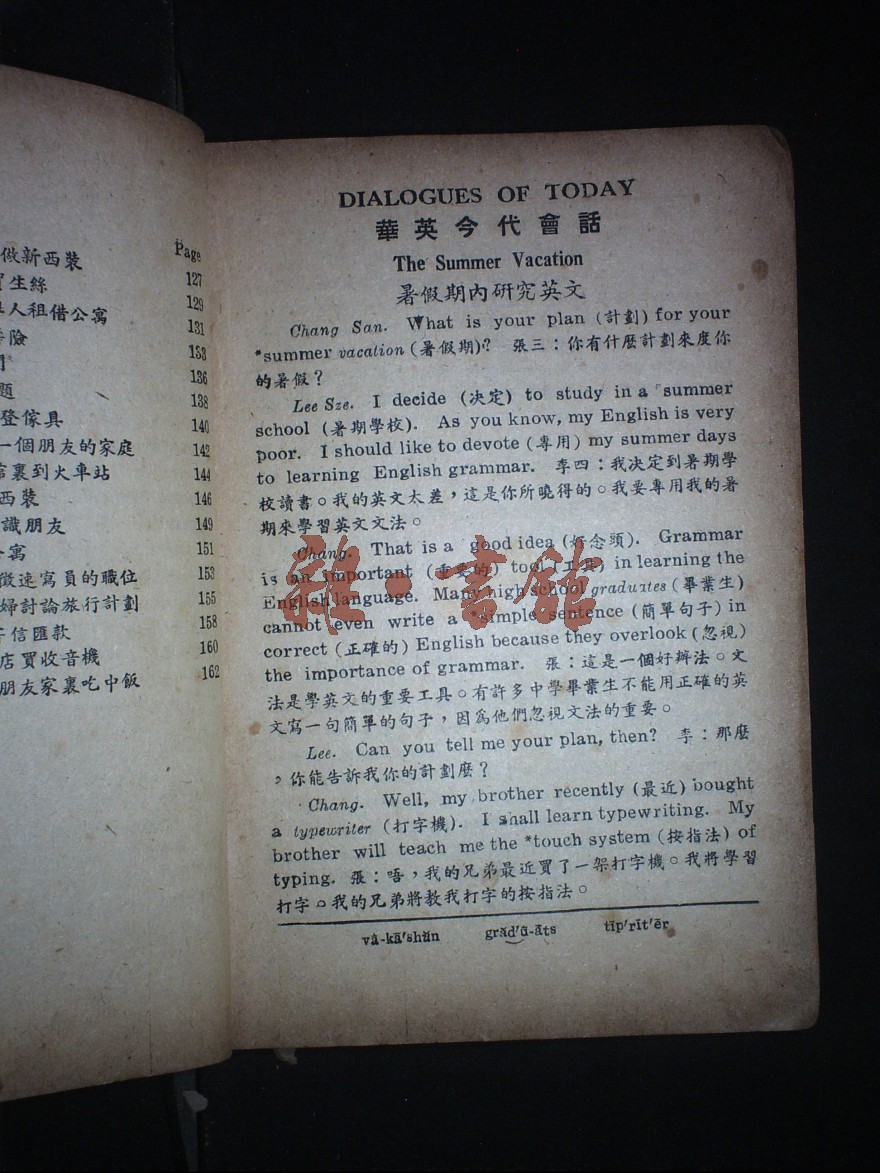 Page
做新西裝 127
生絲 129
人租借公寓 131
險 133
136
題 138
登傢具 140
一個朋友的家庭 142
裏到火車站 144
西裝 146
識朋友 149
寓 151
徵速寫員的職位 153
婦討論旅行計劃 155
信匯款 158
店買收音機 160
朋友家裏吃中飯 162
DIALOGUES OF TODAY
華英今代會話
The Summer Vacation
暑假期內研究英文
Chang San. What is your plan (計劃) for your
*summer vacation (暑假期)? 張三：你有什麽計劃來度你
的暑假？
Lee Sze. I decide (决定) to study in a *summer
school (暑期學校). As you know, my English is very
poor. I should like to devote (專用) my summer days
to learning English grammar. 李四：我决定到暑期學
校讀書。我的英文太差，這是你所曉得的。我要專用我的暑
期來學習英文文法。
Chang. That is a good idea (好念頭). Grammar
is an important (重要的) tool (工具) in learning the
English language. Many high school graduates (畢業生)
cannot even write a simple sentence (簡單句子) in
correct (正確的) English because they overlook (忽視)
the importance of grammar. 張：這是一個好辦法。文
法是學英文的重要工具。有許多中學畢業生不能用正確的英
文寫一句簡單的句子，因爲他們忽視文法的重要。
Lee. Can you tell me your plan, then? 李：那麽
，你能告訴我你的計劃麽？
Chang. Well, my brother recently (最近) bought
a typewriter (打字機). I shall learn typewriting. My
brother will teach me the *touch system (按指法) of
typing. 張：唔，我的兄弟最近買了一架打字機。我將學習
打字。我的兄弟將教我打字的按指法。
vå-kā′shŭn grăd′ū-āts tīp′rīt′ẽr
書館